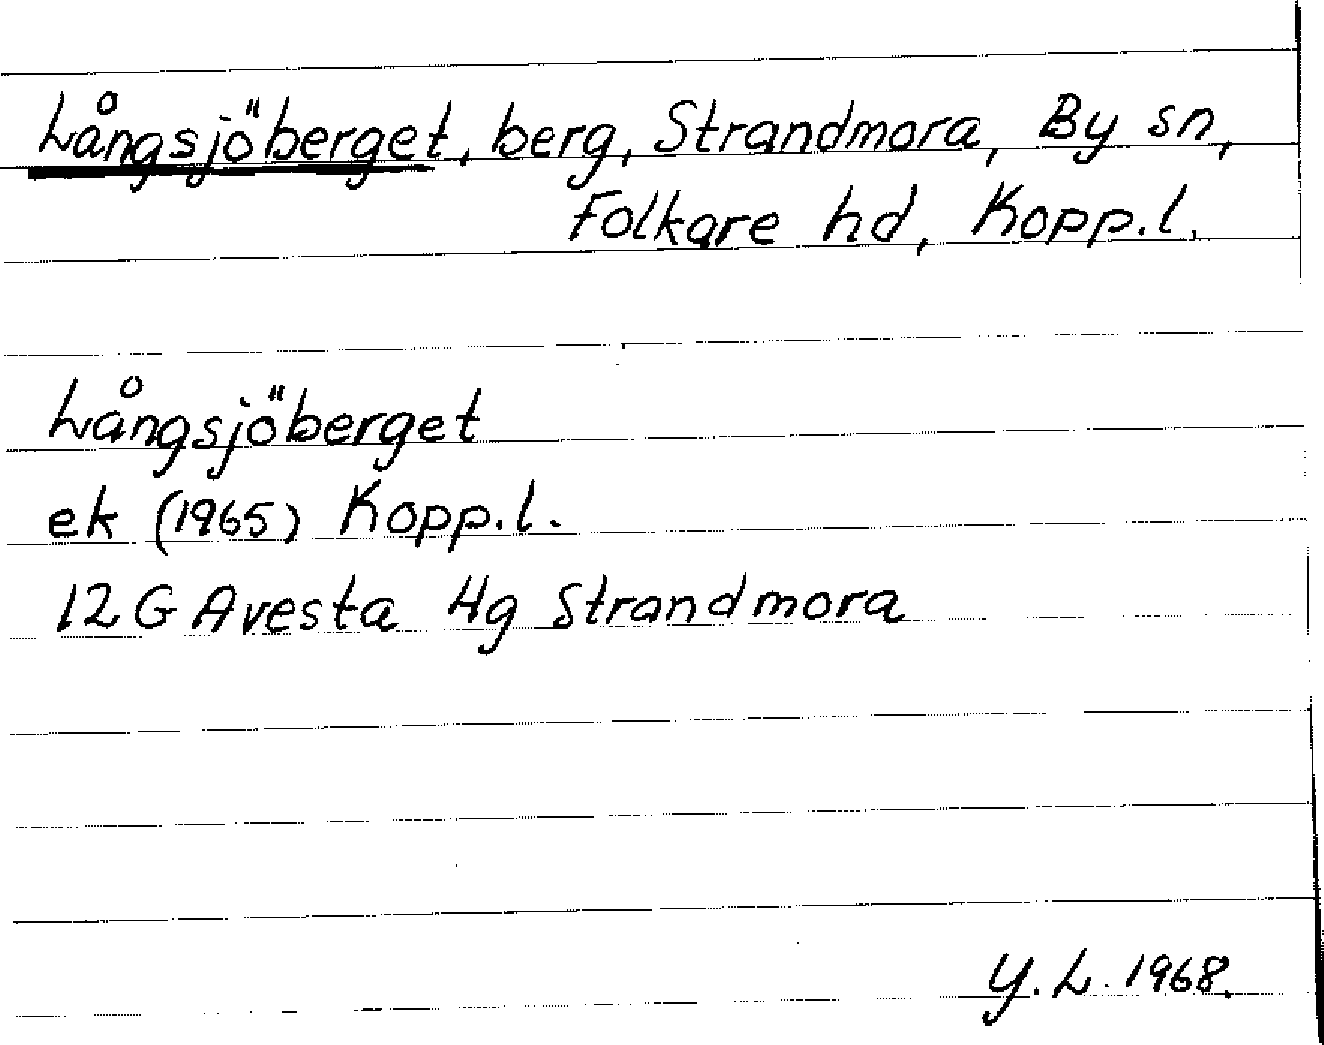 Långsjöberget, berg, Strandmora, By sn,
Folkare hd, Kopp.l.
Långsjöberget
ek (1965) Kopp.l.
12G Avesta 4g Strandmora
Y.L. 1968.